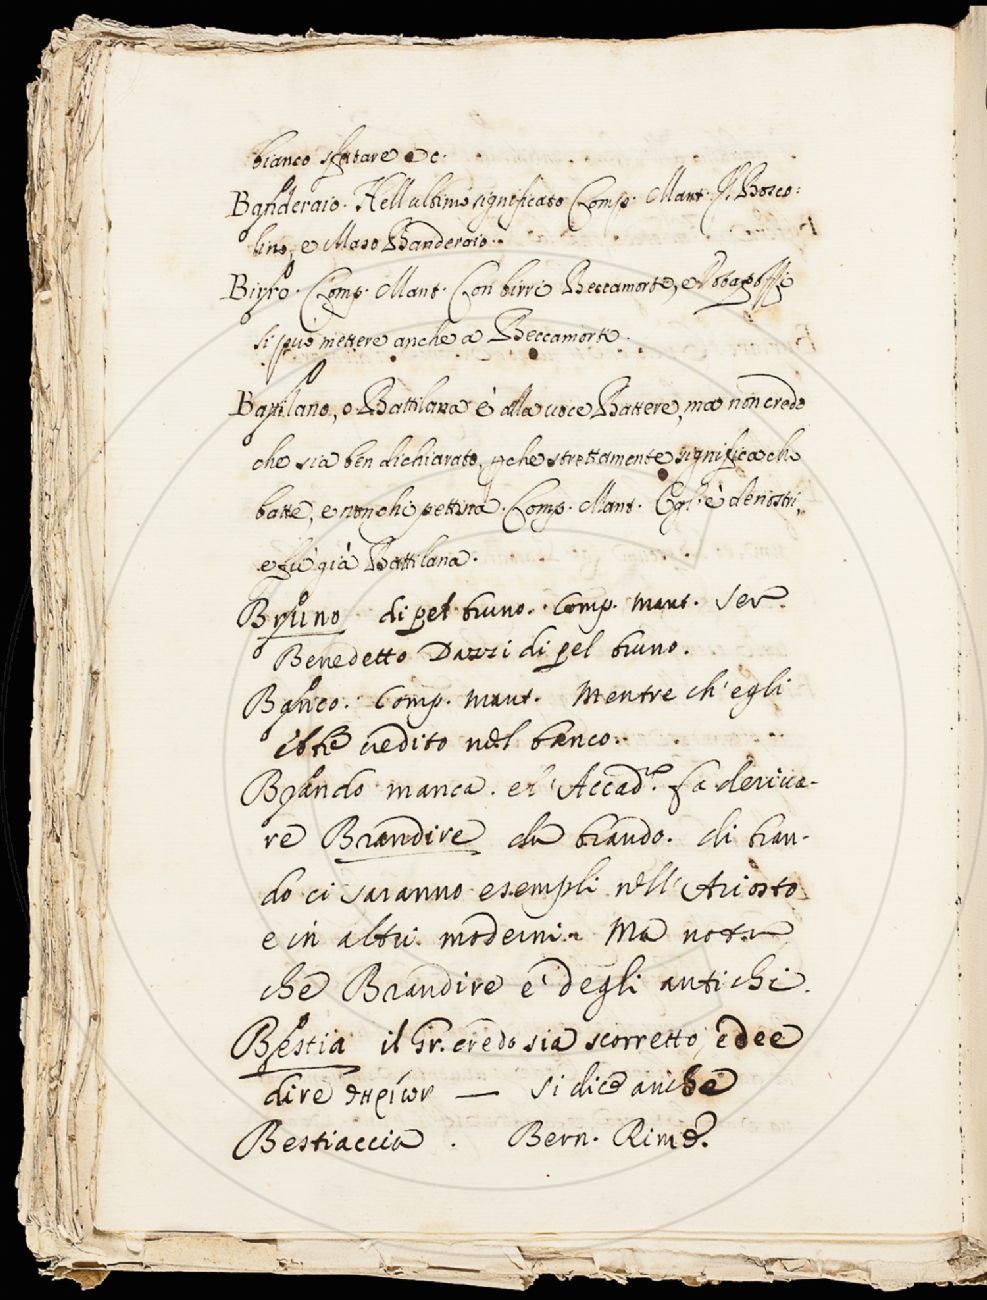 bianco sputare ec.
Banderaio. Nell ultimo significato Comp. Mant. Il Bosco-
lino, e Maso Banderaio.
Birro. Comp. Mant. Con birri Beccamorti, e
si può mettere anche a Beccamorti.
Battilano, o Battilana è alla voce Battere, ma non credo
che sia ben dichiarato, pche strettamente significa chi
batte, e non chi pettina. Comp. Mant. Egl' è de nostri,
e fù già Battilana.
Bruno di pel bruno. Comp. Mant. Ser
Benedetto Dazzi di pel bruno.
Banco. Comp. Mant. Mentre ch' egli
ebbe credito nel banco.
Brando manca. e l'Accad.ª fa deriva-
re Brandire da brando. di bran-
do ci saranno esempli nell' Ariosto
e in altri moderni. Ma nota
che Brandire è degli antichi.
Bestia il Gr. credo sia scorretto, e dee
dire θηρίων — si dice anche
Bestiaccia. Bern. Rime.